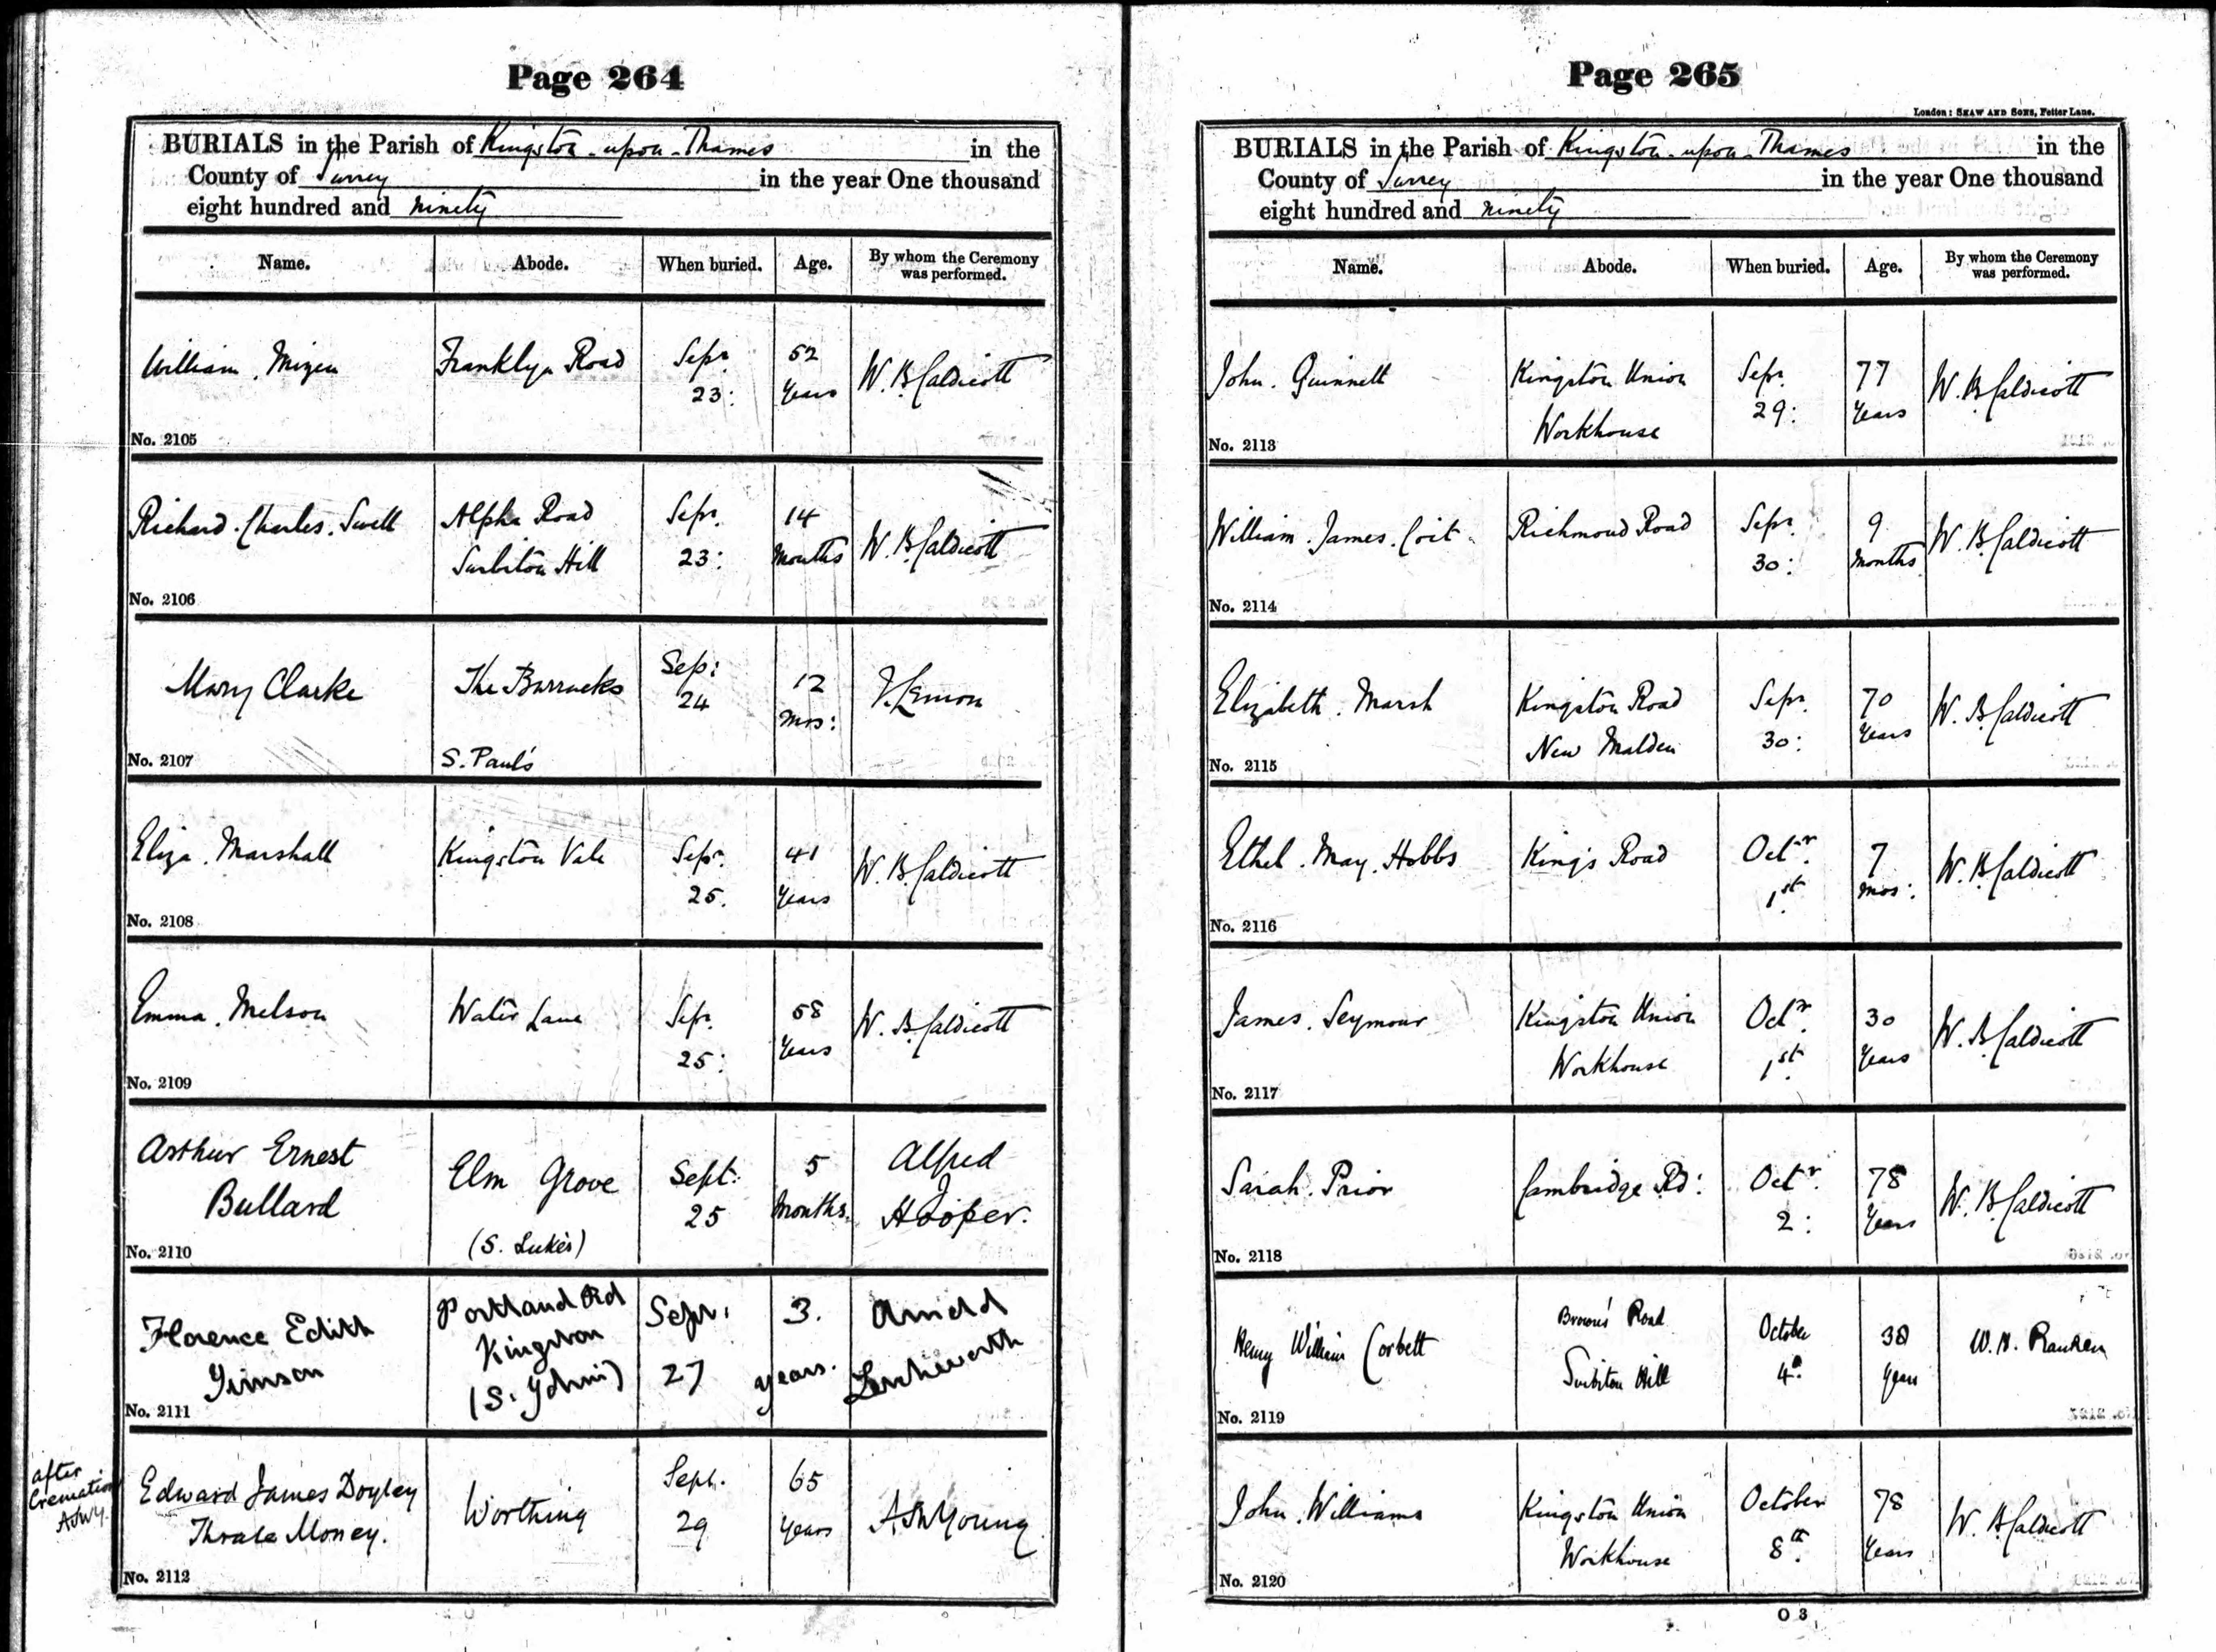 Page 264
BURIALS in the Parish of Kingston-upon-Thames in the
County of Surrey in the year One thousand
eight hundred and ninety
Name. Abode. When buried. Age. By whom the Ceremony
was performed.
William Mizen Franklyn Road Sepr. 52 W. B. Caldicott
23: Years
No. 2105
Richard Charles Alpha Road Sepr. 14 W. B. Caldicott
Surbiton Hill 23: Months
No. 2106
Mary Clarke The Barracks Sep: 12 Lemon
24 mos:
No. 2107 S. Paul's
Eliza Marshall Kingston Vale Sepr. 41 W. B. Caldicott
25. Years
No. 2108
Emma Melson Water Lane Sepr. 58 W. B. Caldicott
25: Years
No. 2109
Arthur Ernest Elm Grove Sept: 5 Alfred
Bullard 25 Months. Hooper.
No. 2110 (S. Luke's)
Florence Edith Portland Rd Sepr. 3. Arnold
Kingston 27 years. Letchworth
(S. John's)
No. 2111
after Cremation Edward James Doyley Worthing Sept. 65 A S W Young
A.S.W.Y. Thrale Money. 29 Years
No. 2112
Page 265
London: SHAW AND SONS, Fetter Lane.
BURIALS in the Parish of Kingston-upon-Thames in the
County of Surrey in the year One thousand
eight hundred and ninety
Name. Abode. When buried. Age. By whom the Ceremony
was performed.
John Quinnell Kingston Union Sepr. 77 W. B. Caldicott
Workhouse 29: Years
No. 2113
William James Coit Richmond Road Sepr. 9 W. B. Caldicott
30: Months
No. 2114
Elizabeth Marsh Kingston Road Sepr. 70 W. B. Caldicott
New Malden 30: Years
No. 2115
Ethel May Hobbs King's Road Octr. 7 W. B. Caldicott
1st mos:
No. 2116
James Seymour Kingston Union Octr. 30 W. B. Caldicott
Workhouse 1st Years
No. 2117
Sarah Prior Cambridge Rd: Octr. 78 W. B. Caldicott
2: Years
No. 2118
Henry William Corbett Brown's Road October 38 W. H. Ranken
Surbiton Hill 4th Years
No. 2119
John Williams Kingston Union October 78 W. B. Caldicott
Workhouse 8th. Years
No. 2120
O 3